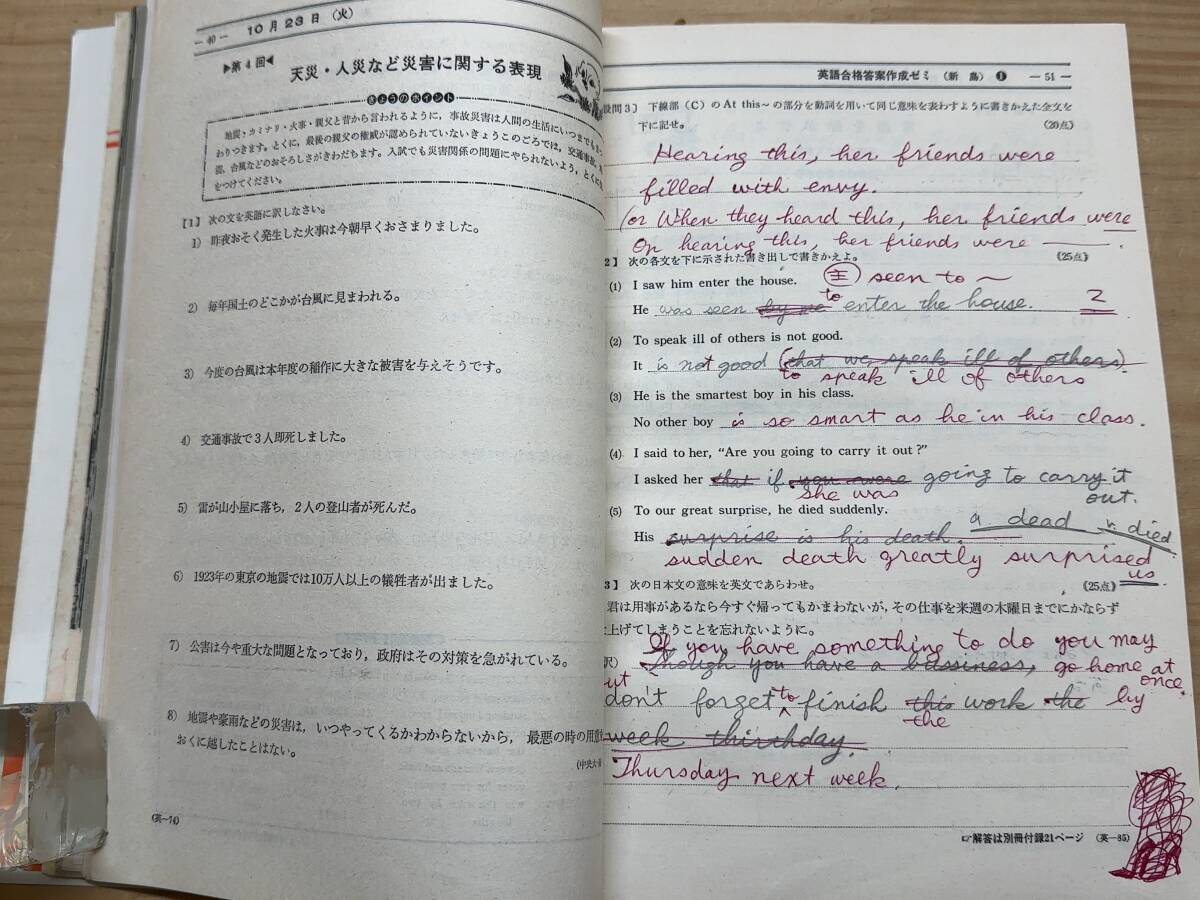 — 40 — 10月23日(火)
▶第4回◀ 天災・人災など災害に関する表現
きょうのポイント
地震・カミナリ・火事・親父と昔から言われるように,事故災害は人間の生活にいつまでも
わりつきます。とくに,最後の親父の権威が認められていないきょうこのごろでは,交通事故,
台風などのおそろしさがきわだちます。入試でも災害関係の問題にやられないよう,とくに
をつけてください。
[1] 次の文を英語に訳しなさい。
1) 昨夜おそく発生した火事は今朝早くおさまりました。
2) 毎年国土のどこかが台風に見まわれる。
3) 今度の台風は本年度の稲作に大きな被害を与えそうです。
4) 交通事故で3人即死しました。
5) 雷が山小屋に落ち,2人の登山者が死んだ。
6) 1923年の東京の地震では10万人以上の犠牲者が出ました。
7) 公害は今や重大な問題となっており,政府はその対策を急がれている。
8) 地震や豪雨などの災害は,いつやってくるかわからないから,最悪の時の用意
おくに越したことはない。
(中央大
(英—74)
英語合格答案作成ゼミ (新島) ❶ — 51 —
設問3] 下線部(C)のAt this~の部分を動詞を用いて同じ意味を表わすように書きかえた全文を
下に記せ。 (20点)
Hearing this, her friends were
filled with envy.
(or When they heard this, her friends were
On hearing this, her friends were ——.
2] 次の各文を下に示された書き出しで書きかえよ。 《25点》
(1) I saw him enter the house. 主 seen to ~
He was seen by me to enter the house. 2
(2) To speak ill of others is not good.
It is not good (that we speak ill of others).
to speak ill of others
(3) He is the smartest boy in his class.
No other boy is so smart as he in his class.
(4) I said to her, “Are you going to carry it out?”
I asked her that if you were going to carry it
she was out.
(5) To our great surprise, he died suddenly.
a dead v. died
His surprise is his death.
sudden death greatly surprised
us
3] 次の日本文の意味を英文であらわせ。 《25点》
君は用事があるなら今すぐ帰ってもかまわないが,その仕事を来週の木曜日までにかならず
上げてしまうことを忘れないように。
If you have something to do you may
訳) Though you have a bussiness, go home at
once.
ut
don't forget to finish this work the by
the
week thirthday.
Thursday next week.
☞解答は別冊付録21ページ (英—85)